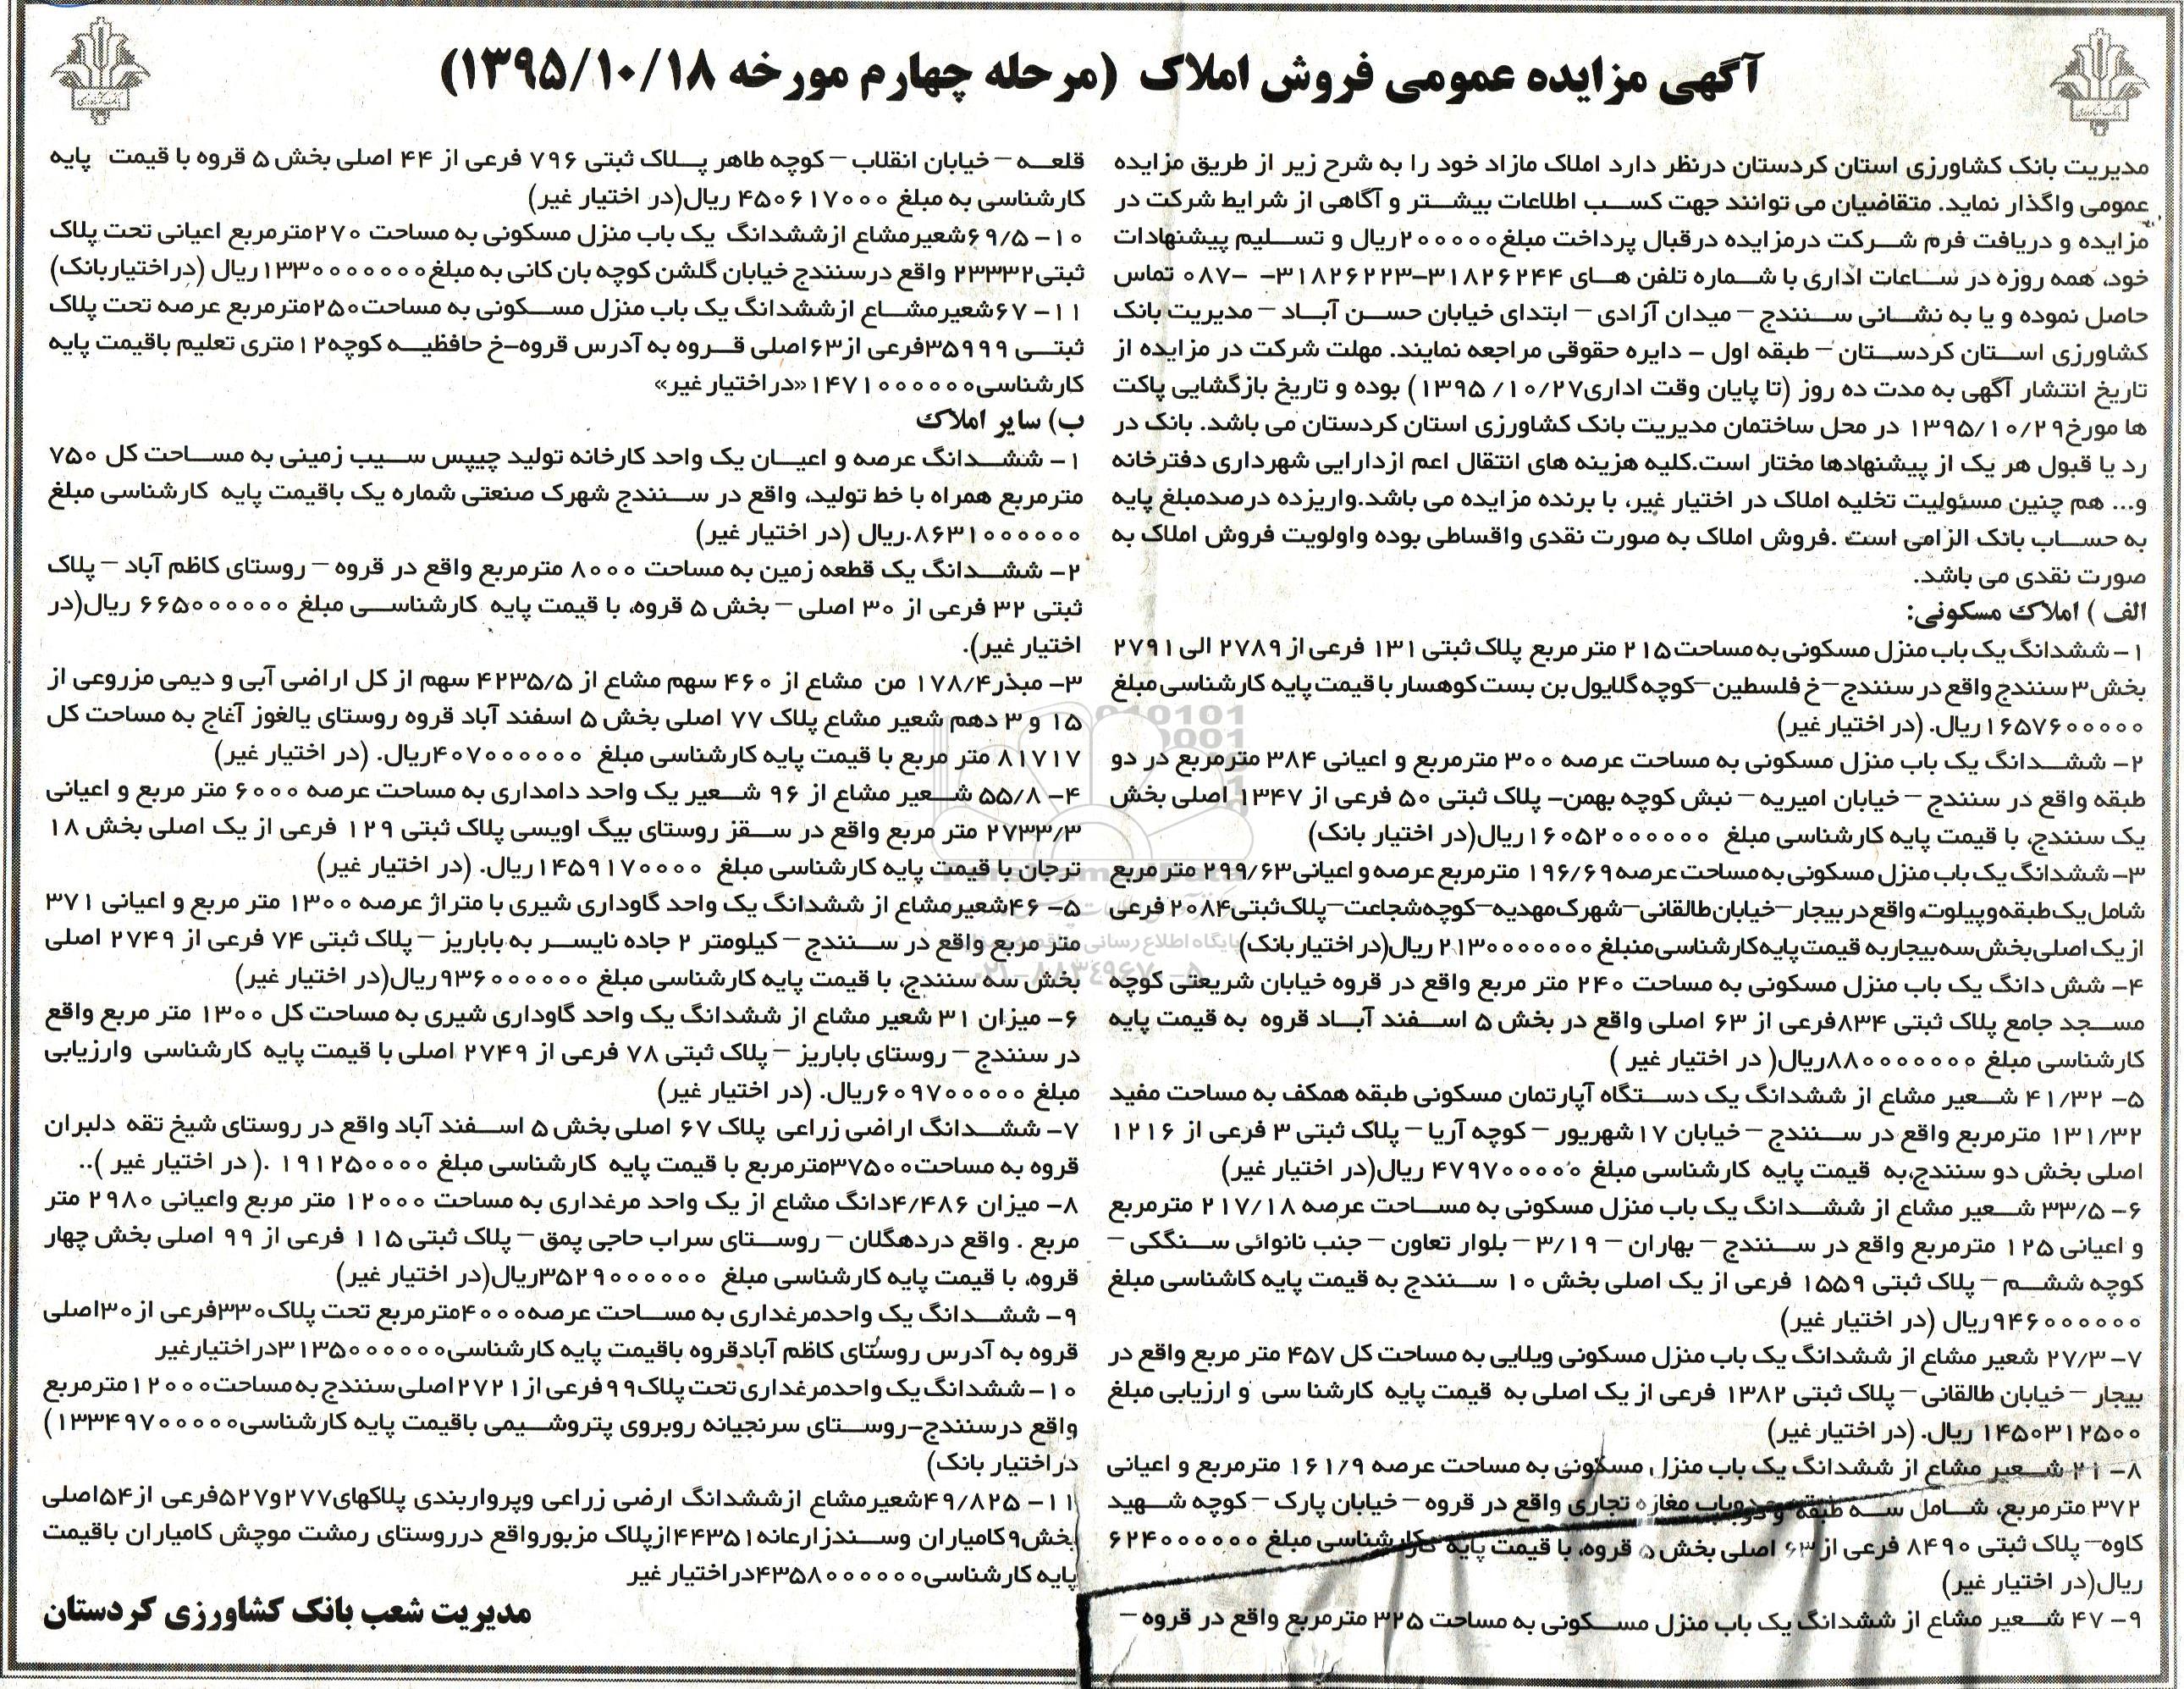 آگهی مزایده عمومی فروش املاک (مرحله چهارم مورخه ۱۳۹۵/۱۰/۱۸)
مدیریت بانک کشاورزی استان کردستان درنظر دارد املاک مازاد خود را به شرح زیر از طریق مزایده
عمومی واگذار نماید. متقاضیان می توانند جهت کسب اطلاعات بیشتر و آگاهی از شرایط شرکت در
مزایده و دریافت فرم شرکت درمزایده درقبال پرداخت مبلغ۲۰۰۰۰۰ریال و تسلیم پیشنهادات
خود، همه روزه در ساعات اداری با شماره تلفن های ۳۱۸۲۶۲۴۴-۳۱۸۲۶۲۲۳- -۰۸۷ تماس
حاصل نموده و یا به نشانی سنندج – میدان آزادی – ابتدای خیابان حسن آباد – مدیریت بانک
کشاورزی استان کردستان – طبقه اول – دایره حقوقی مراجعه نمایند. مهلت شرکت در مزایده از
تاریخ انتشار آگهی به مدت ده روز (تا پایان وقت اداری۱۳۹۵/۱۰/۲۷) بوده و تاریخ بازگشایی پاکت
ها مورخ۱۳۹۵/۱۰/۲۹ در محل ساختمان مدیریت بانک کشاورزی استان کردستان می باشد. بانک در
رد یا قبول هر یک از پیشنهادها مختار است.کلیه هزینه های انتقال اعم ازدارایی شهرداری دفترخانه
و... هم چنین مسئولیت تخلیه املاک در اختیار غیر، با برنده مزایده می باشد.واریزده درصدمبلغ پایه
به حساب بانک الزامی است .فروش املاک به صورت نقدی واقساطی بوده واولویت فروش املاک به
صورت نقدی می باشد.
الف ) املاک مسکونی:
۱- ششدانگ یک باب منزل مسکونی به مساحت۲۱۵ متر مربع پلاک ثبتی ۱۳۱ فرعی از ۲۷۸۹ الی ۲۷۹۱
بخش۳ سنندج واقع در سنندج –خ فلسطین –کوچه گلایول بن بست کوهسار با قیمت پایه کارشناسی مبلغ
۱۶۵۷۶۰۰۰۰۰ریال. (در اختیار غیر)
۲- ششدانگ یک باب منزل مسکونی به مساحت عرصه ۳۰۰ مترمربع و اعیانی ۳۸۴ مترمربع در دو
طبقه واقع در سنندج – خیابان امیریه – نبش کوچه بهمن- پلاک ثبتی ۵۰ فرعی از ۱۳۴۷ اصلی بخش
یک سنندج، با قیمت پایه کارشناسی مبلغ ۱۶۰۵۲۰۰۰۰۰۰ریال(در اختیار بانک)
۳- ششدانگ یک باب منزل مسکونی به مساحت عرصه ۱۹۶/۶۹ مترمربع عرصه و اعیانی۲۹۹/۶۳ متر مربع
شامل یک طبقه وپیلوت، واقع در بیجار – خیابان طالقانی – شهرک مهدیه – کوچه شجاعت – پلاک ثبتی۲۰۸۴ فرعی
از یک اصلی بخش سه بیجار به قیمت پایه کارشناسی منبلغ ۲۱۳۰۰۰۰۰۰۰ ریال(در اختیار بانک)
۴- شش دانگ یک باب منزل مسکونی به مساحت ۲۴۰ متر مربع واقع در قروه خیابان شریعتی کوچه
مسجد جامع پلاک ثبتی ۸۳۴فرعی از ۶۳ اصلی واقع در بخش ۵ اسفند آباد قروه به قیمت پایه
کارشناسی مبلغ ۸۸۰۰۰۰۰۰۰۰ریال( در اختیار غیر )
۵- ۴۱/۳۲ شعیر مشاع از ششدانگ یک دستگاه آپارتمان مسکونی طبقه همکف به مساحت مفید
۱۳۱/۳۲ مترمربع واقع در سنندج – خیابان ۱۷شهریور – کوچه آریا – پلاک ثبتی ۳ فرعی از ۱۲۱۶
اصلی بخش دو سنندج،به قیمت پایه کارشناسی مبلغ ۴۷۹۷۰۰۰۰۰ ریال(در اختیار غیر)
۶- ۳۳/۵ شعیر مشاع از ششدانگ یک باب منزل مسکونی به مساحت عرصه ۲۱۷/۱۸ مترمربع
و اعیانی ۱۲۵ مترمربع واقع در سنندج – بهاران – ۳/۱۹ – بلوار تعاون – جنب نانوائی سنگکی –
کوچه ششم – پلاک ثبتی ۱۵۵۹ فرعی از یک اصلی بخش ۱۰ سنندج به قیمت پایه کاشناسی مبلغ
۹۴۶۰۰۰۰۰۰ریال (در اختیار غیر)
۷- ۲۷/۳ شعیر مشاع از ششدانگ یک باب منزل مسکونی ویلایی به مساحت کل ۴۵۷ متر مربع واقع در
بیجار – خیابان طالقانی – پلاک ثبتی ۱۳۸۲ فرعی از یک اصلی به قیمت پایه کارشنا سی و ارزیابی مبلغ
۱۴۵۰۳۱۲۵۰۰ ریال. (در اختیار غیر)
۸- ۲۱ شعیر مشاع از ششدانگ یک باب منزل مسکونی به مساحت عرصه ۱۶۱/۹ مترمربع و اعیانی
۳۷۲ مترمربع، شامل سه طبقه و دوباب مغازه تجاری واقع در قروه – خیابان پارک – کوچه شهید
کاوه– پلاک ثبتی ۸۴۹۰ فرعی از ۶۳ اصلی بخش ۵ قروه، با قیمت پایه کارشناسی مبلغ ۶۲۴۰۰۰۰۰۰
ریال(در اختیار غیر)
۹- ۴۷ شعیر مشاع از ششدانگ یک باب منزل مسکونی به مساحت ۳۲۵ مترمربع واقع در قروه –
قلعه – خیابان انقلاب – کوچه طاهر پلاک ثبتی ۷۹۶ فرعی از ۴۴ اصلی بخش ۵ قروه با قیمت پایه
کارشناسی به مبلغ ۴۵۰۶۱۷۰۰۰ ریال(در اختیار غیر)
۱۰- ۶۹/۵شعیرمشاع ازششدانگ یک باب منزل مسکونی به مساحت ۲۷۰مترمربع اعیانی تحت پلاک
ثبتی۲۳۳۳۲ واقع درسنندج خیابان گلشن کوچه بان کانی به مبلغ۱۳۳۰۰۰۰۰۰۰ریال (دراختیاربانک)
۱۱- ۶۷شعیرمشاع ازششدانگ یک باب منزل مسکونی به مساحت۲۵۰مترمربع عرصه تحت پلاک
ثبتی ۳۵۹۹۹فرعی از۶۳اصلی قروه به آدرس قروه-خ حافظیه کوچه۱۲متری تعلیم باقیمت پایه
کارشناسی۱۴۷۱۰۰۰۰۰۰«دراختیار غیر»
ب) سایر املاک
۱- ششدانگ عرصه و اعیان یک واحد کارخانه تولید چیپس سیب زمینی به مساحت کل ۷۵۰
مترمربع همراه با خط تولید، واقع در سنندج شهرک صنعتی شماره یک باقیمت پایه کارشناسی مبلغ
۸۶۳۱۰۰۰۰۰۰.ریال (در اختیار غیر)
۲- ششدانگ یک قطعه زمین به مساحت ۸۰۰۰ مترمربع واقع در قروه – روستای کاظم آباد – پلاک
ثبتی ۳۲ فرعی از ۳۰ اصلی – بخش ۵ قروه، با قیمت پایه کارشناسی مبلغ ۶۶۵۰۰۰۰۰۰ ریال(در
اختیار غیر).
۳- مبذر۱۷۸/۴ من مشاع از ۴۶۰ سهم مشاع از ۴۲۳۵/۵ سهم از کل اراضی آبی و دیمی مزروعی از
۱۵ و ۳ دهم شعیر مشاع پلاک ۷۷ اصلی بخش ۵ اسفند آباد قروه روستای یالغوز آغاج به مساحت کل
۸۱۷۱۷ متر مربع با قیمت پایه کارشناسی مبلغ ۴۰۷۰۰۰۰۰۰ریال. (در اختیار غیر)
۴- ۵۵/۸ شعیر مشاع از ۹۶ شعیر یک واحد دامداری به مساحت عرصه ۶۰۰۰ متر مربع و اعیانی
۲۷۳۳/۳ متر مربع واقع در سقز روستای بیگ اویسی پلاک ثبتی ۱۲۹ فرعی از یک اصلی بخش ۱۸
ترجان با قیمت پایه کارشناسی مبلغ ۱۴۵۹۱۷۰۰۰۰ریال. (در اختیار غیر)
۵- ۴۶شعیرمشاع از ششدانگ یک واحد گاوداری شیری با متراژ عرصه ۱۳۰۰ متر مربع و اعیانی ۳۷۱
متر مربع واقع در سنندج – کیلومتر ۲ جاده نایسر به باباریز – پلاک ثبتی ۷۴ فرعی از ۲۷۴۹ اصلی
بخش سه سنندج، با قیمت پایه کارشناسی مبلغ ۹۳۶۰۰۰۰۰۰ریال(در اختیار غیر)
۶- میزان ۳۱ شعیر مشاع از ششدانگ یک واحد گاوداری شیری به مساحت کل ۱۳۰۰ متر مربع واقع
در سنندج – روستای باباریز – پلاک ثبتی ۷۸ فرعی از ۲۷۴۹ اصلی با قیمت پایه کارشناسی وارزیابی
مبلغ ۶۰۹۷۰۰۰۰۰ریال. (در اختیار غیر)
۷- ششدانگ اراضی زراعی پلاک ۶۷ اصلی بخش ۵ اسفند آباد واقع در روستای شیخ تقه دلبران
قروه به مساحت۳۷۵۰۰مترمربع با قیمت پایه کارشناسی مبلغ ۱۹۱۲۵۰۰۰۰ .( در اختیار غیر )..
۸- میزان ۴/۴۸۶دانگ مشاع از یک واحد مرغداری به مساحت ۱۲۰۰۰ متر مربع واعیانی ۲۹۸۰ متر
مربع . واقع دردهگلان – روستای سراب حاجی پمق – پلاک ثبتی ۱۱۵ فرعی از ۹۹ اصلی بخش چهار
قروه، با قیمت پایه کارشناسی مبلغ ۳۵۲۹۰۰۰۰۰۰ریال(در اختیار غیر)
۹- ششدانگ یک واحدمرغداری به مساحت عرصه۴۰۰۰مترمربع تحت پلاک۳۳۰فرعی از۳۰اصلی
قروه به آدرس روستای کاظم آبادقروه باقیمت پایه کارشناسی۳۱۳۵۰۰۰۰۰۰دراختیارغیر
۱۰- ششدانگ یک واحدمرغداری تحت پلاک۹۹فرعی از۲۷۲۱اصلی سنندج به مساحت۱۲۰۰۰مترمربع
واقع درسنندج-روستای سرنجیانه روبروی پتروشیمی باقیمت پایه کارشناسی۱۳۳۴۹۷۰۰۰۰۰)
دراختیار بانک)
۱۱- ۴۹/۸۲۵شعیرمشاع ازششدانگ ارضی زراعی وپرواربندی پلاکهای۲۷۷و۵۲۷فرعی از۵۴اصلی
بخش۹کامیاران وسندزارعانه۴۴۳۵۱ازپلاک مزبورواقع درروستای رمشت موچش کامیاران باقیمت
پایه کارشناسی۴۳۵۸۰۰۰۰۰۰دراختیار غیر
مدیریت شعب بانک کشاورزی کردستان